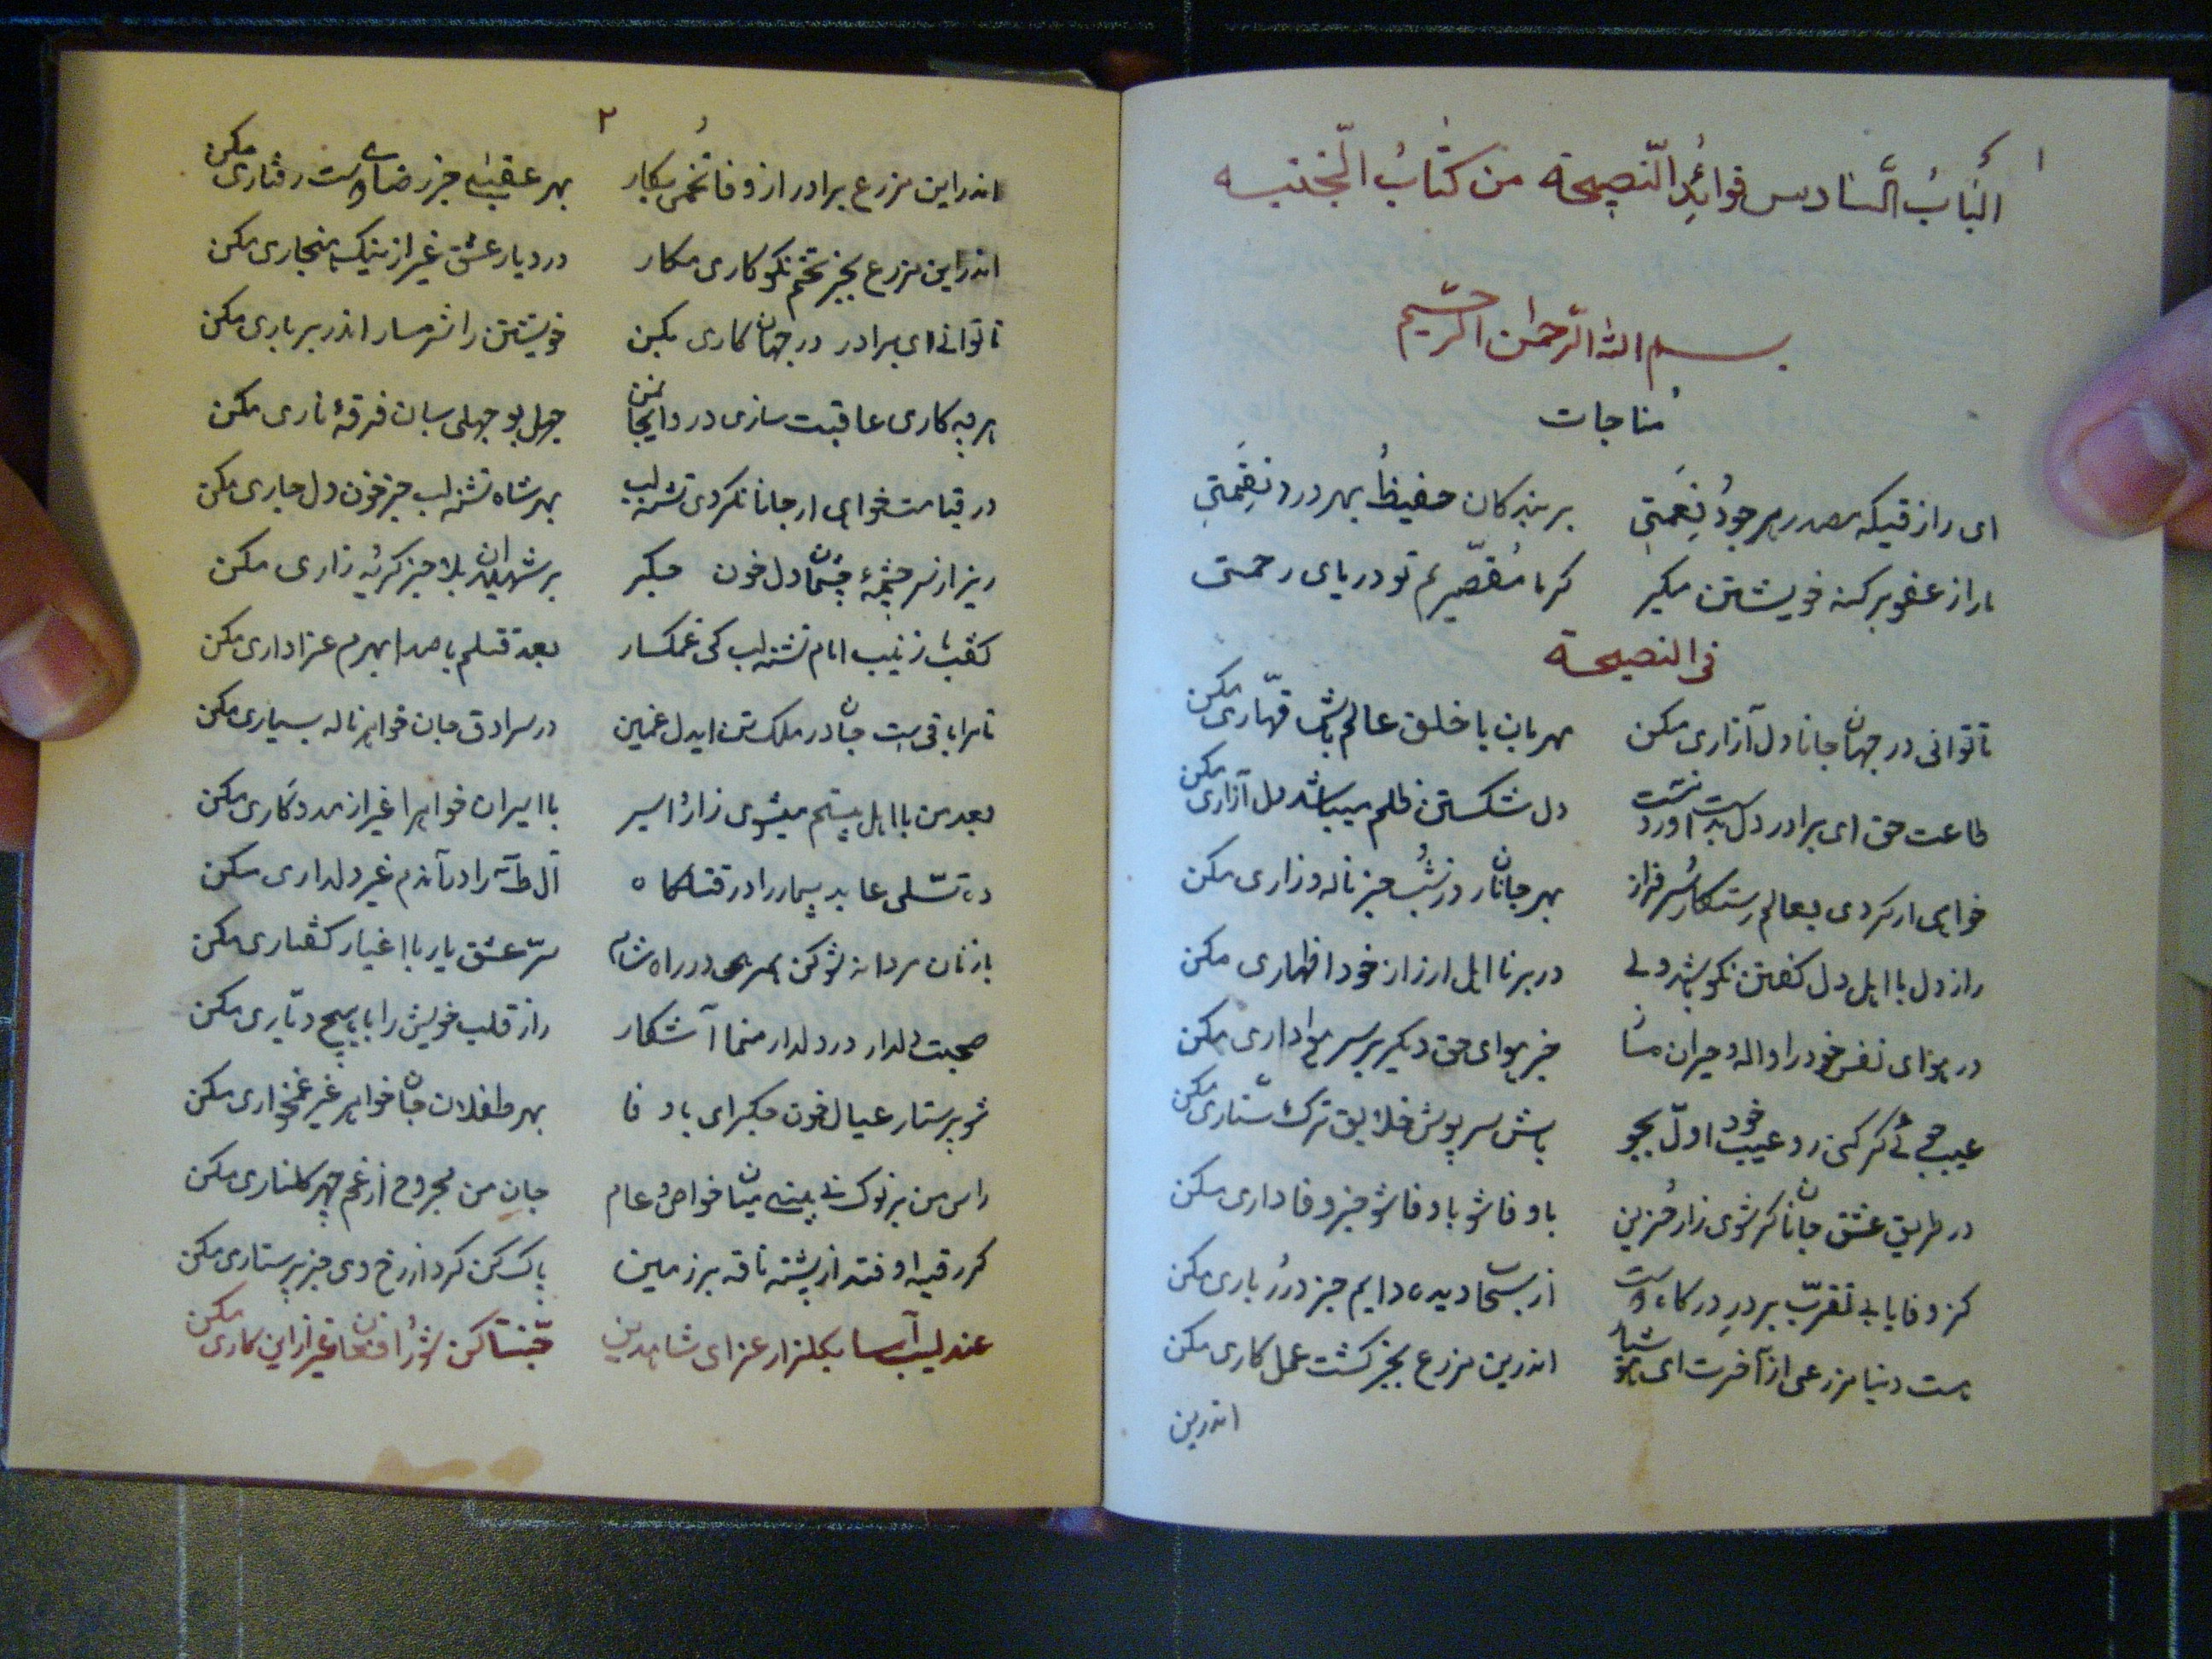 ۱
الباب السادس فوائد النصیحة من کتاب النجنبیه
بسم الله الرّحمن الرّحیم
مناجات
ای رازقیکه مصدر هر جود نعمتی بر بندکان حفیظ بهر درد نقمتی
مارا ز عفو بر کنه خویشتن مکیر کر ما مقصّریم تو دریای رحمتی
فی النصیحة
تا توانی در جهان جانا دل آزاری مکن مهربان با خلق عالم باش قهّاری مکن
طاعت حق ای برادر دل بدست آوردنست دل شکستن ظلم میباشد دل آزاری مکن
خواهی ار کردی بعالم رستکار و سرفراز بهر جانان روز و شب جز ناله و زاری مکن
راز دل با اهل دل کفتن نکو باشد ولی در بر نا اهل ارزاز خود اظهاری مکن
در هوای نفس خود را واله و حیران مساز جز هوای حق دیکر بر سر هواداری مکن
عیب جوئی کر کنی رو عیب خود اوّل بجو باش سرپوش خلایق ترک ستّاری مکن
در طریق عشق جانان کر شوی زار و حزین با وفا شو با وفا شو جز وفاداری مکن
کز وفا یابی تقرّب بر در درکاه دوست از سحاب دیده دایم جز درر باری مکن
هست دنیا مزرعی از آخرت ای هوشیار اندرین مزرع بجز کشت عمل کاری مکن
اندرین
۲
اندر این مزرع برادر از وفا تخمی بکار بهر عقبی جز رضای دوست رفتاری مکن
اندر این مزرع بجز تخم نکوکاری مکار در دیار عشق غیر از نیک هنجاری مکن
تا توانی ای برادر در جهان کاری بکن خویشتن را شرمسار اندر بر باری مکن
هر چه کاری عاقبت سازی درو ای جان من جهل بوجهلی بسان فرقهٔ ناری مکن
در قیامت خواهی ار جانا نکردی تشنه لب بهر شاه تشنه لب جز خون دل جاری مکن
ریز از سرچشمهٔ چشمان دل خون جکر بر شهیدان بلا جز کریه زاری مکن
کفت با زینب امام تشنه لب کی غمکسار بعد قتلم با صدا بهرم عزاداری مکن
تا مرا باقیست جان در ملک تن ایدل غمین در سرادق جان خواهر ناله بسیاری مکن
بعد من با اهل بیتم میشوی زار و اسیر با اسیران خواهرا غیر از مددکاری مکن
ده تسّلی عابد بیمار را در قتلکاه آل طه را در آندم غیر دلداری مکن
با زنان مردانه شو کن همرهی در راه شام سرّ عشق یار با اغیار کفتاری مکن
صحبت دلدار در دلدار منما آشکار راز قلب خویش را با هیچ دیّاری مکن
شو پرستار عیال خون جکر ای با وفا بهر طفلان جان خواهر غیر غمخواری مکن
راس من بر نوک نی بینی میان خواص و عام جان من مجروح از غم چهر کلناری مکن
کر رقیه اوفتد از پشته ناقه بر زمین پاک کن کرد از رخ وی جز پرستاری مکن
عندلیب آسا بکلزار عزای شاهدین جنّتا کن شور و افغان غیر از این کاری مکن